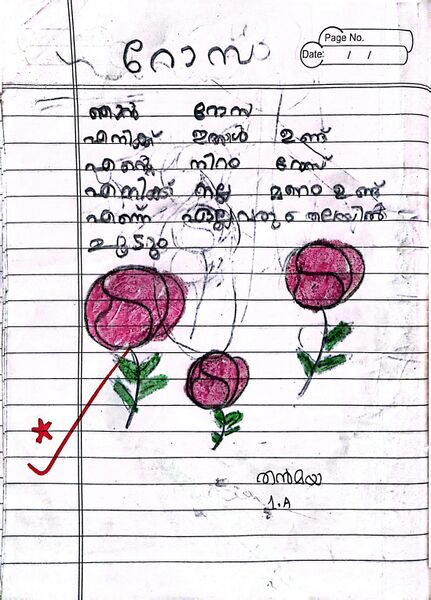 റോസാ
Page No.
Date: / /
ഞാൻ റോസ
എനിക്ക് ഇതാൾ ഉണ്ട്
എന്റെ നിറം റോസ്
എനിക്ക് നല്ല മണം ഉണ്ട്
എല്ലവരു തലയിൽ
തൻമയ
1.A